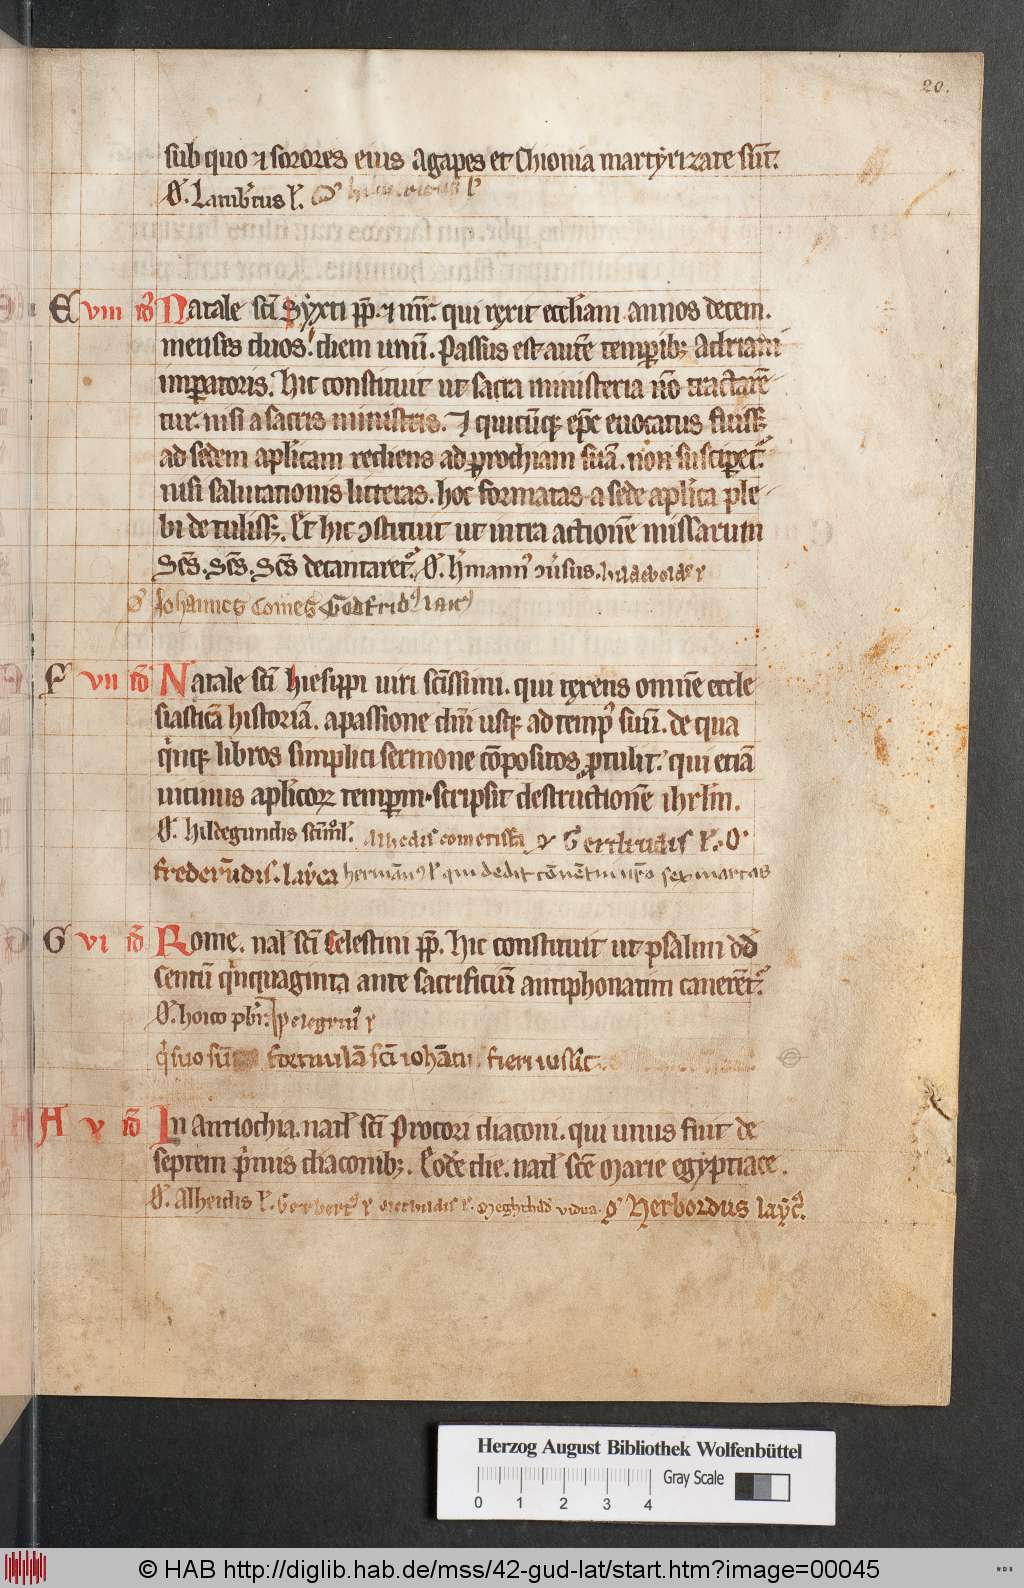 20.
sub quo ⁊ sorores eius Agapes et Chionia martyrizate sūt.
Lamb̄tus
E viii id᷒ Natale sc̄i Syxti pp̄. ⁊ mr̄. qui rexit eccl̄iam annos decem.
menses duos. diem unū. Passus est autē temporib; Adriani
imꝑatoris. Hic constituit ut sacra ministeria nō tractarē
tur. nisi a sacris ministris. ⁊ quicūq; ep̄c euocatus fuiss;
ad sedem apl̄icam rediens ad ꝑrochiam suā. non susciꝑet᷑.
nisi salutationis litteras. hoc formatas a sede apl̄ica ple
bi detuliss;. Et hic ↄstituit ut intra actionē missarum
Sc̄s. Sc̄s. Sc̄s decantaret᷑. Ꝋ. h̄mann᷒ ↄūsus. hildeboldꝰ
Ꝋ Johannes comes Godfrid᷒ laic᷒
F vii id᷒ Natale sc̄i hiesippi uiri sc̄issimi. qui texens omnē eccle
siasticā historiā. a passione dn̄i usq; ad temp᷒ suū. de qua
qͥnq; libros simplici sermone cōpositos ꝓtulit. qui etiā
uicinus apl̄icoꝝ temꝑm. scripsit destructionē ihrl̄m.
Ꝋ. hildegundis Alhedis cometissa Ꝋ Gertrudis Ꝋ
frederūdis. layca hermān᷒ qui dedit cōuētui nr̄o sex marcas
G vi id᷒ Rome. nat̄ sc̄i Celestini pp̄. Hic constituit ut psalmi dd̄
centū qͥnquaginta ante sacrificiū antiphonatim canerēt᷑.
Ꝋ. hoico pb̄r. pelegrin᷒
fieri iussit
A v id᷒ In Antiochia. nat̄ sc̄i Procori diaconi. qui unus fuit de
septem pͥmis diaconib;. Eodē die. nat̄ sc̄e Marie egyptiace.
Ꝋ. Alheidis Gerbert᷒ Meghthild᷒ vidua. Ꝋ Herbordus layc᷒.
Herzog August Bibliothek Wolfenbüttel
Gray Scale
0 1 2 3 4
© HAB http://diglib.hab.de/mss/42-gud-lat/start.htm?image=00045